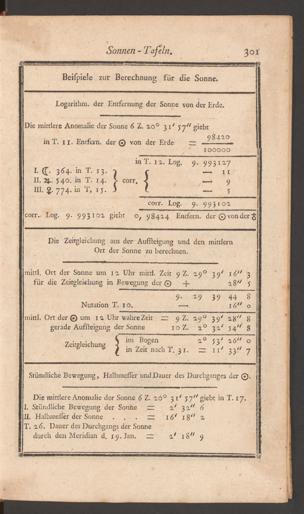 Sonnen-Tafeln. 301
Beispiele zur Berechnung für die Sonne.
Logarithm. der Entfernung der Sonne von der Erde.
Die mittlere Anomalie der Sonne 6 Z. 20° 31′ 57″ giebt
in T. 11. Entfern. der ☉ von der Erde = 98420/100000
in T. 12. Log. 9. 993127
I. ☾. 364. in T. 13. — 11
II. ♃. 540. in T. 14. } corr. { — 9
III. ♀. 774. in T, 15. — 5
corr. Log. 9. 993102
corr. Log. 9. 993102 giebt 0, 98424 Entfern. der ☉ von der ♁
Die Zeitgleichung aus der Aufsteigung und den mittlern
Ort der Sonne zu berechnen.
mittl. Ort der Sonne um 12 Uhr mittl. Zeit 9 Z. 29° 39′ 16″ 3
für die Zeitgleichung in Bewegung der ☉ + 28″ 5
9. 29 39 44 8
Nutation T. 10. — 16″ 0
mittl. Ort der ☉ um 12 Uhr wahre Zeit = 9 Z. 29° 39′ 28″ 8
gerade Aufsteigung der Sonne 10 Z. 2° 32′ 54″ 8
Zeitgleichung { im Bogen 2° 53′ 26″ 0
in Zeit nach T. 31. = 11′ 33″ 7
Stündliche Bewegung, Halbmesser und Dauer des Durchganges der ☉.
Die mittlere Anomalie der Sonne 6 Z. 20° 31′ 57″ giebt in T. 17.
I. Stündliche Bewegung der Sonne = 2′ 32″ 6
II. Halbmesser der Sonne . . . = 16′ 18″ 2
T. 26. Dauer des Durchgangs der Sonne
durch den Meridian d. 19. Jan. = 2′ 18″ 9